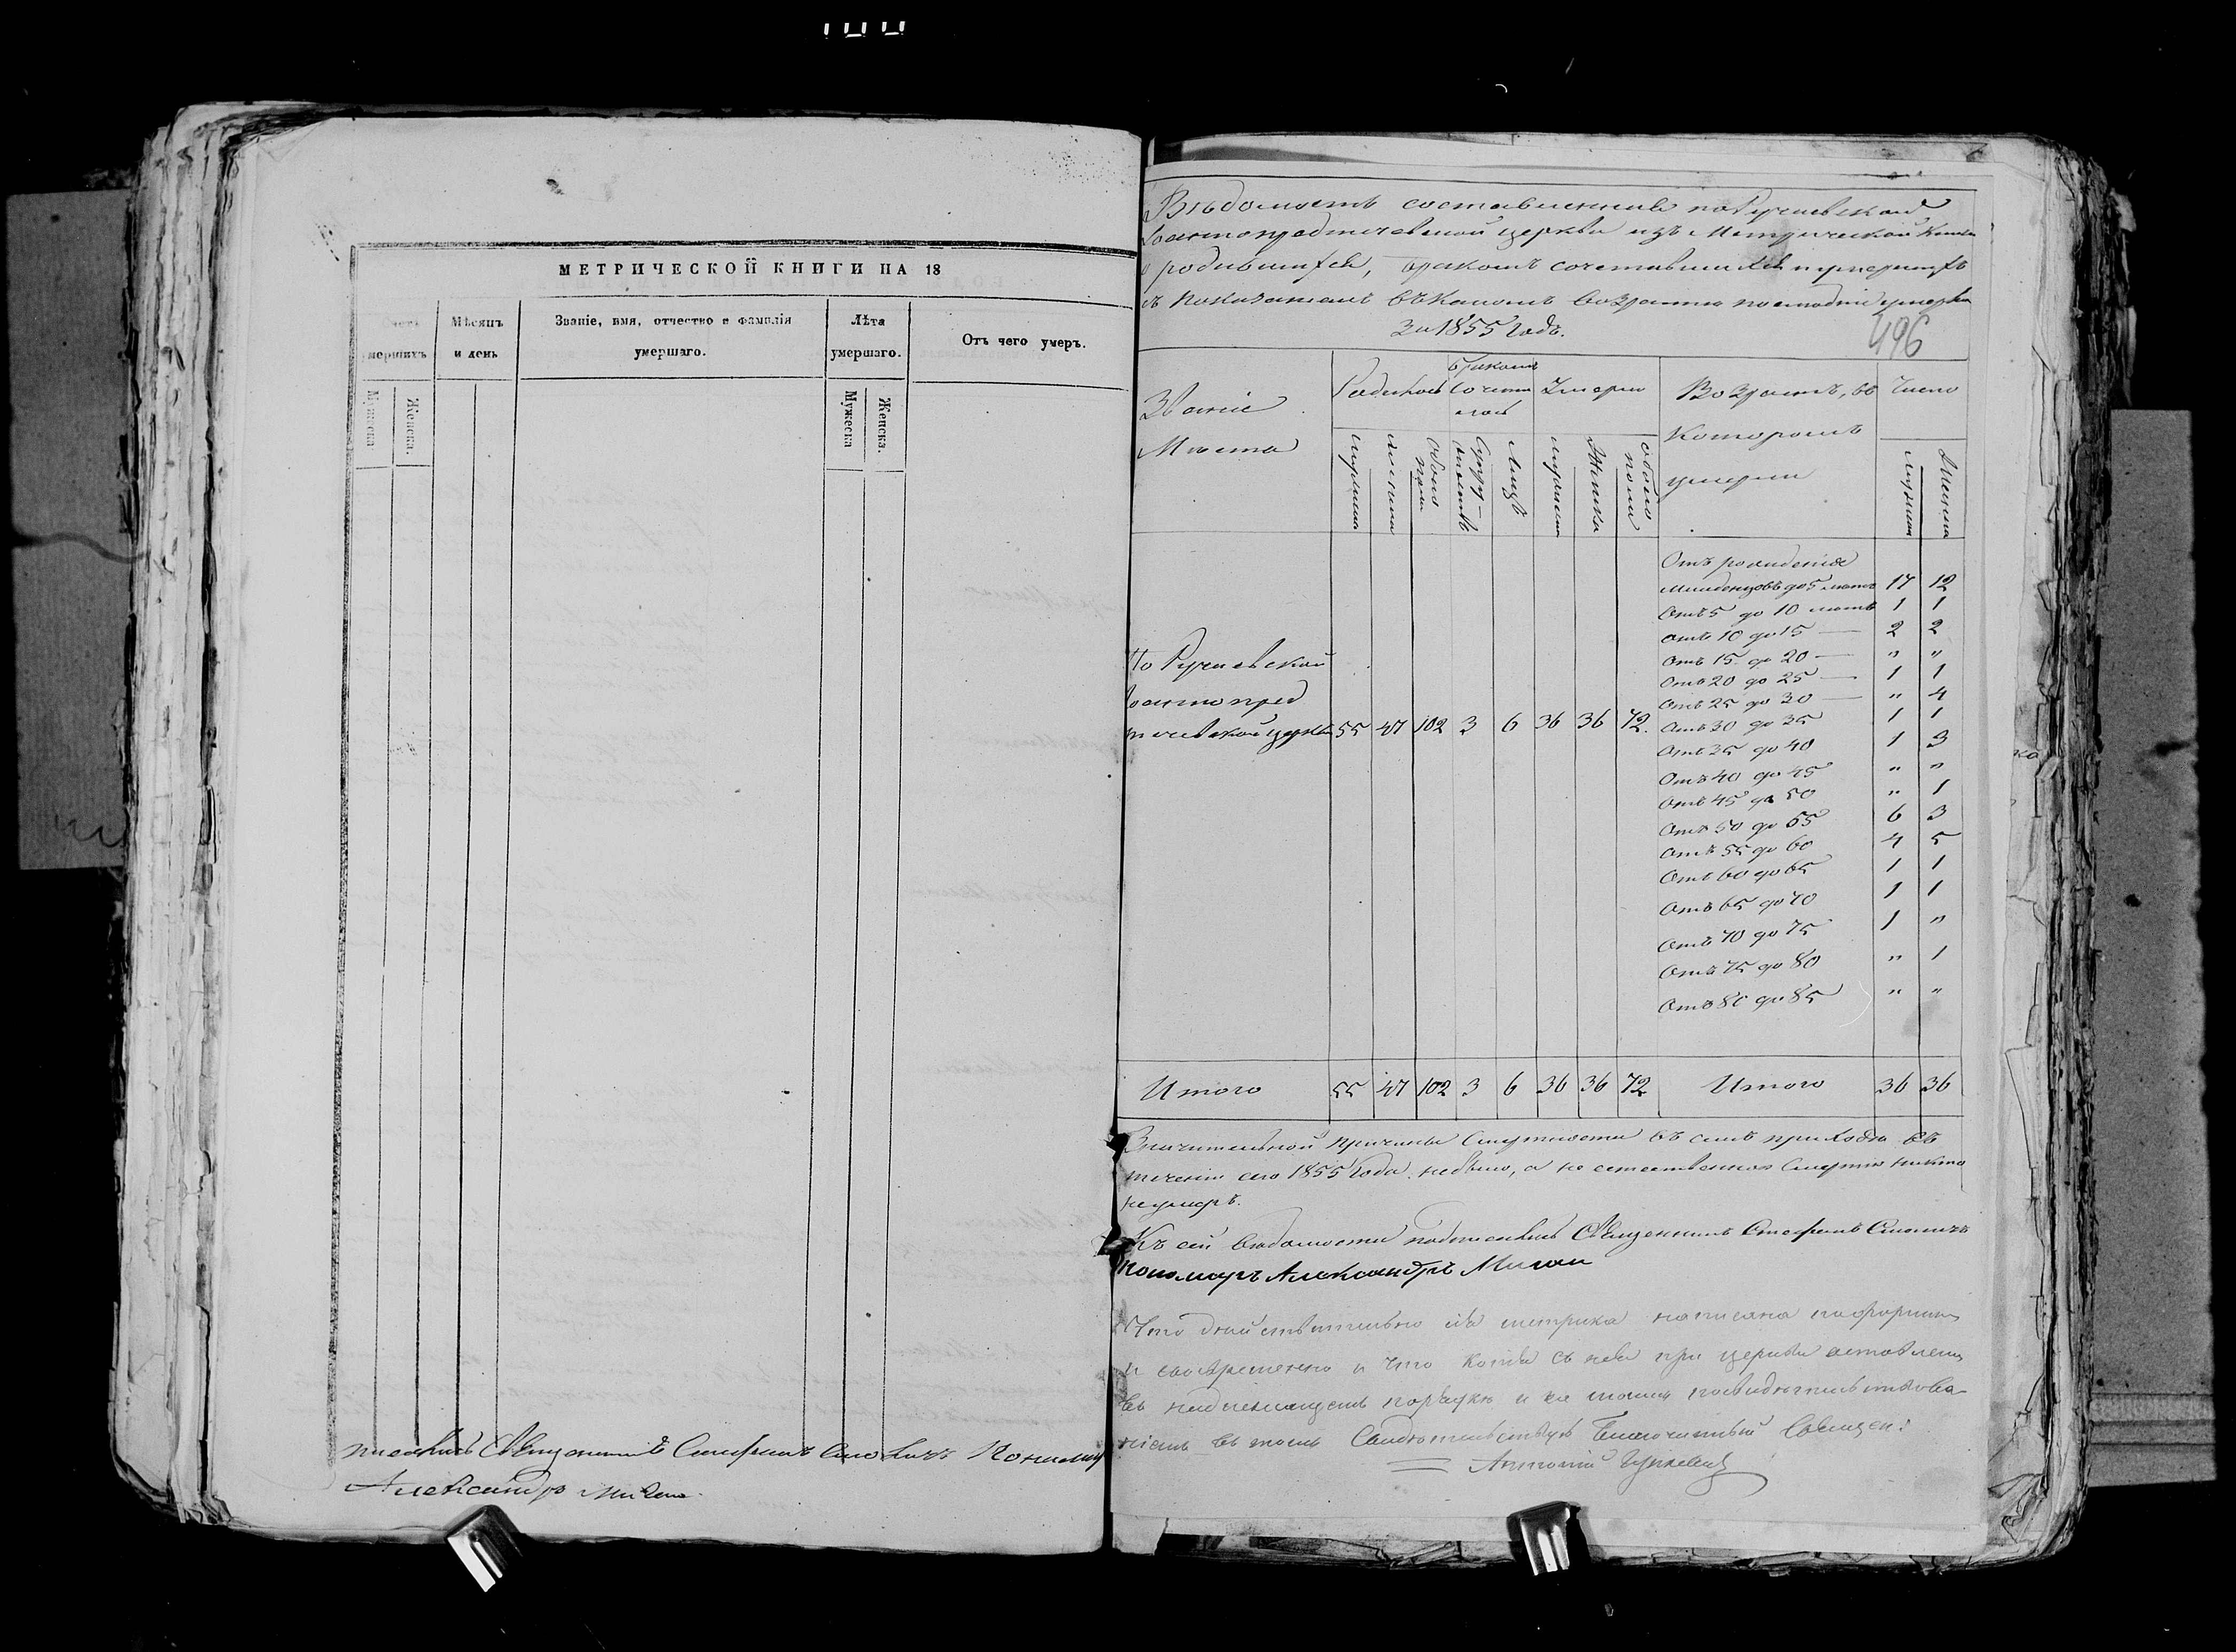 МЕТРИЧЕСКОЙ КНИГИ НА 18
умершихъ
Мѣсяцъ
и день
Званіе, имя, отчество и фамилія
умершаго.
Лѣта
умершаго.
Отъ чего умеръ.
Мужеска
Женска.
Мужеска
Женска.
Священникъ Стефанъ
Александръ
Вѣдомость составленная по Ручаевской
церкви изъ Метрической книги
родившихся, бракомъ сочетавшихся и умершихъ
съ показаніемъ въ какомъ возрастѣ
за 1855 Годъ.
496
Званіе
Мѣста
Родилось
Бракомъ
Сочета
лось
Умерло
Возрастъ, въ
которомъ
умерли
Число
мужеска
женска
обоего
пола
Супру-
жествъ
Лицъ
мужеска
Женска
обоего
пола
мужеска
Женска
Отъ рожденія
младенцовъ до 5 лѣтъ 17 12
Отъ 5 до 10 лѣтъ 1 1
Отъ 10 до 15 — 2 2
Отъ 15 до 20 — " "
Отъ 20 до 25 — 1 1
Отъ 25 до 30 — " 4
Отъ 30 до 35 1 1
Отъ 35 до 40 1 3
Отъ 40 до 45 " "
Отъ 45 до 50 " 1
Отъ 50 до 55 6 3
Отъ 55 до 60 4 5
Отъ 60 до 65 1 1
Отъ 65 до 70 1 1
Отъ 70 до 75 1 "
Отъ 75 до 80 " 1
Отъ 80 до 85 " "
По Ручаевской
церкви 55 47 102 3 6 36 36 72.
Итого 55 47 102 3 6 36 36 72 Итого 36 36
Значительной причины Смертности въ семъ приходѣ въ
теченіи сего 1855 Года небыло, а не естественною Смертію никто
неумеръ.
Къ сей вѣдомости подписались Священникъ Стефанъ
пономаръ Александръ
Что дѣйствительно сія метрика написана по формѣ
и своевременно и что копія съ нея при церкви оставлена
въ надлежащемъ порядкѣ и
въ томъ Свидѣтельствую Благочинный Священ:
Антоній